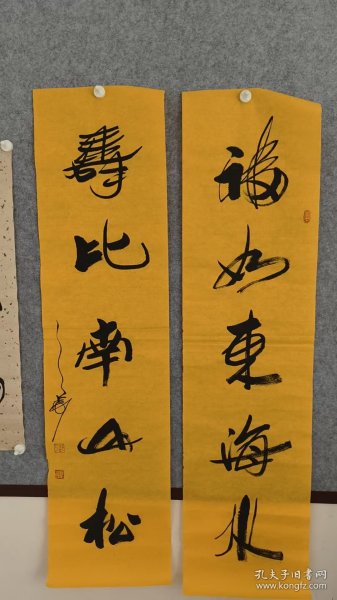 福如東海水
壽比南山松
孔夫子旧书网
www.kongfz.com